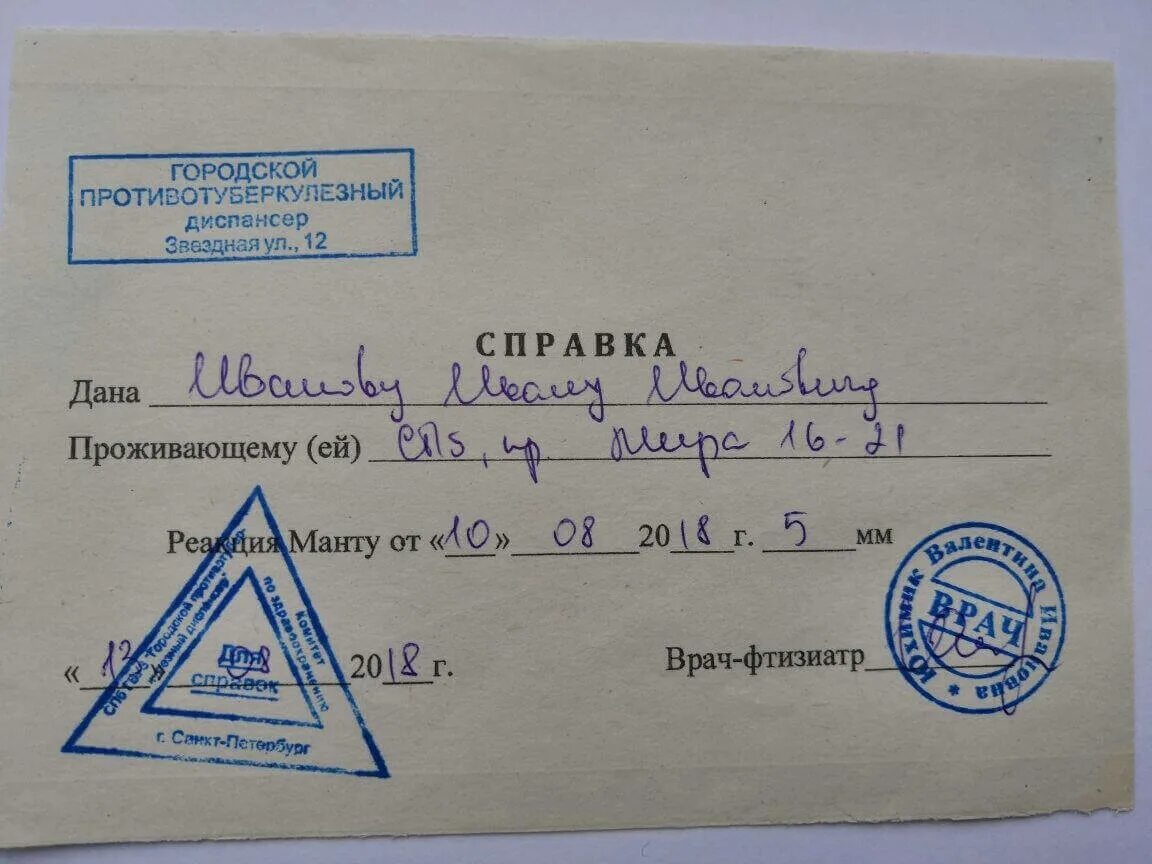 ГОРОДСКОЙ
ПРОТИВОТУБЕРКУЛЕЗНЫЙ
диспансер
Звездная ул., 12
СПРАВКА
Дана Иванову Ивану Ивановичу
Проживающему (ей) СПб, пр. Мира 16-21
Реакция Манту от «10» 08 2018 г. 5 мм
Врач-фтизиатр
«13» 08 2018 г.
Юхимик Валентина Ивановна *
ВРАЧ
СПб ГБУЗ "Городской противотуберкулезный диспансер"
комитет
по здравоохранению
Для
справок
г. Санкт-Петербург